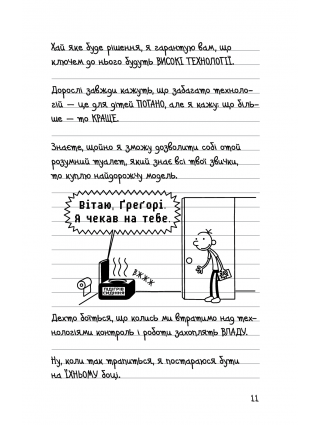 Хай яке буде рішення, я гарантую вам, що
ключем до нього будуть ВИСОКІ ТЕХНОЛОГІЇ.
Дорослі завжди кажуть, що забагато техноло-
гій — це для дітей ПОГАНО, але я кажу: що біль-
ше — то КРАЩЕ.
Знаєте, щойно я зможу дозволити собі отой
розумний туалет, який знає всі твої звички,
то куплю найдорожчу модель.
Вітаю, Ґреґорі.
Я чекав на тебе.
ВЖЖЖ
ПІДІГРІВ
СИДІННЯ
Дехто боїться, що колись ми втратимо над тех-
нологіями контроль і роботи захоплять ВЛАДУ.
Ну, коли так трапиться, я постараюся бути
на ЇХНЬОМУ боці.
11